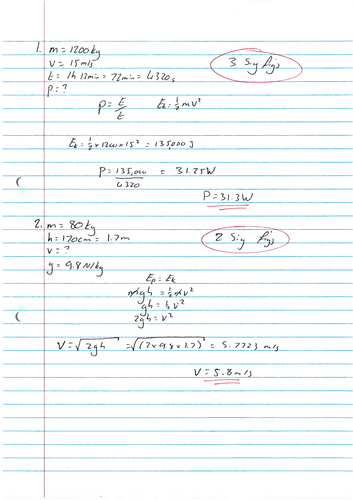 1. m = 1200kg
v = 15m/s
3 Sig figs
t = 1h 12min = 72min = 4320s
P = ?
P = E/t    Ek = ½mv²
Ek = ½ × 1200 × 15² = 135000J
P = 135,000/4320 = 31.25W
P = 31.3W
2. m = 80kg
h = 170cm = 1.7m
2 Sig figs
v = ?
g = 9.8N/kg
Ep = Ek
mgh = ½mv²
gh = ½v²
2gh = v²
V = √2gh = √(2×9.8×1.7) = 5.7723 m/s
V = 5.8m/s